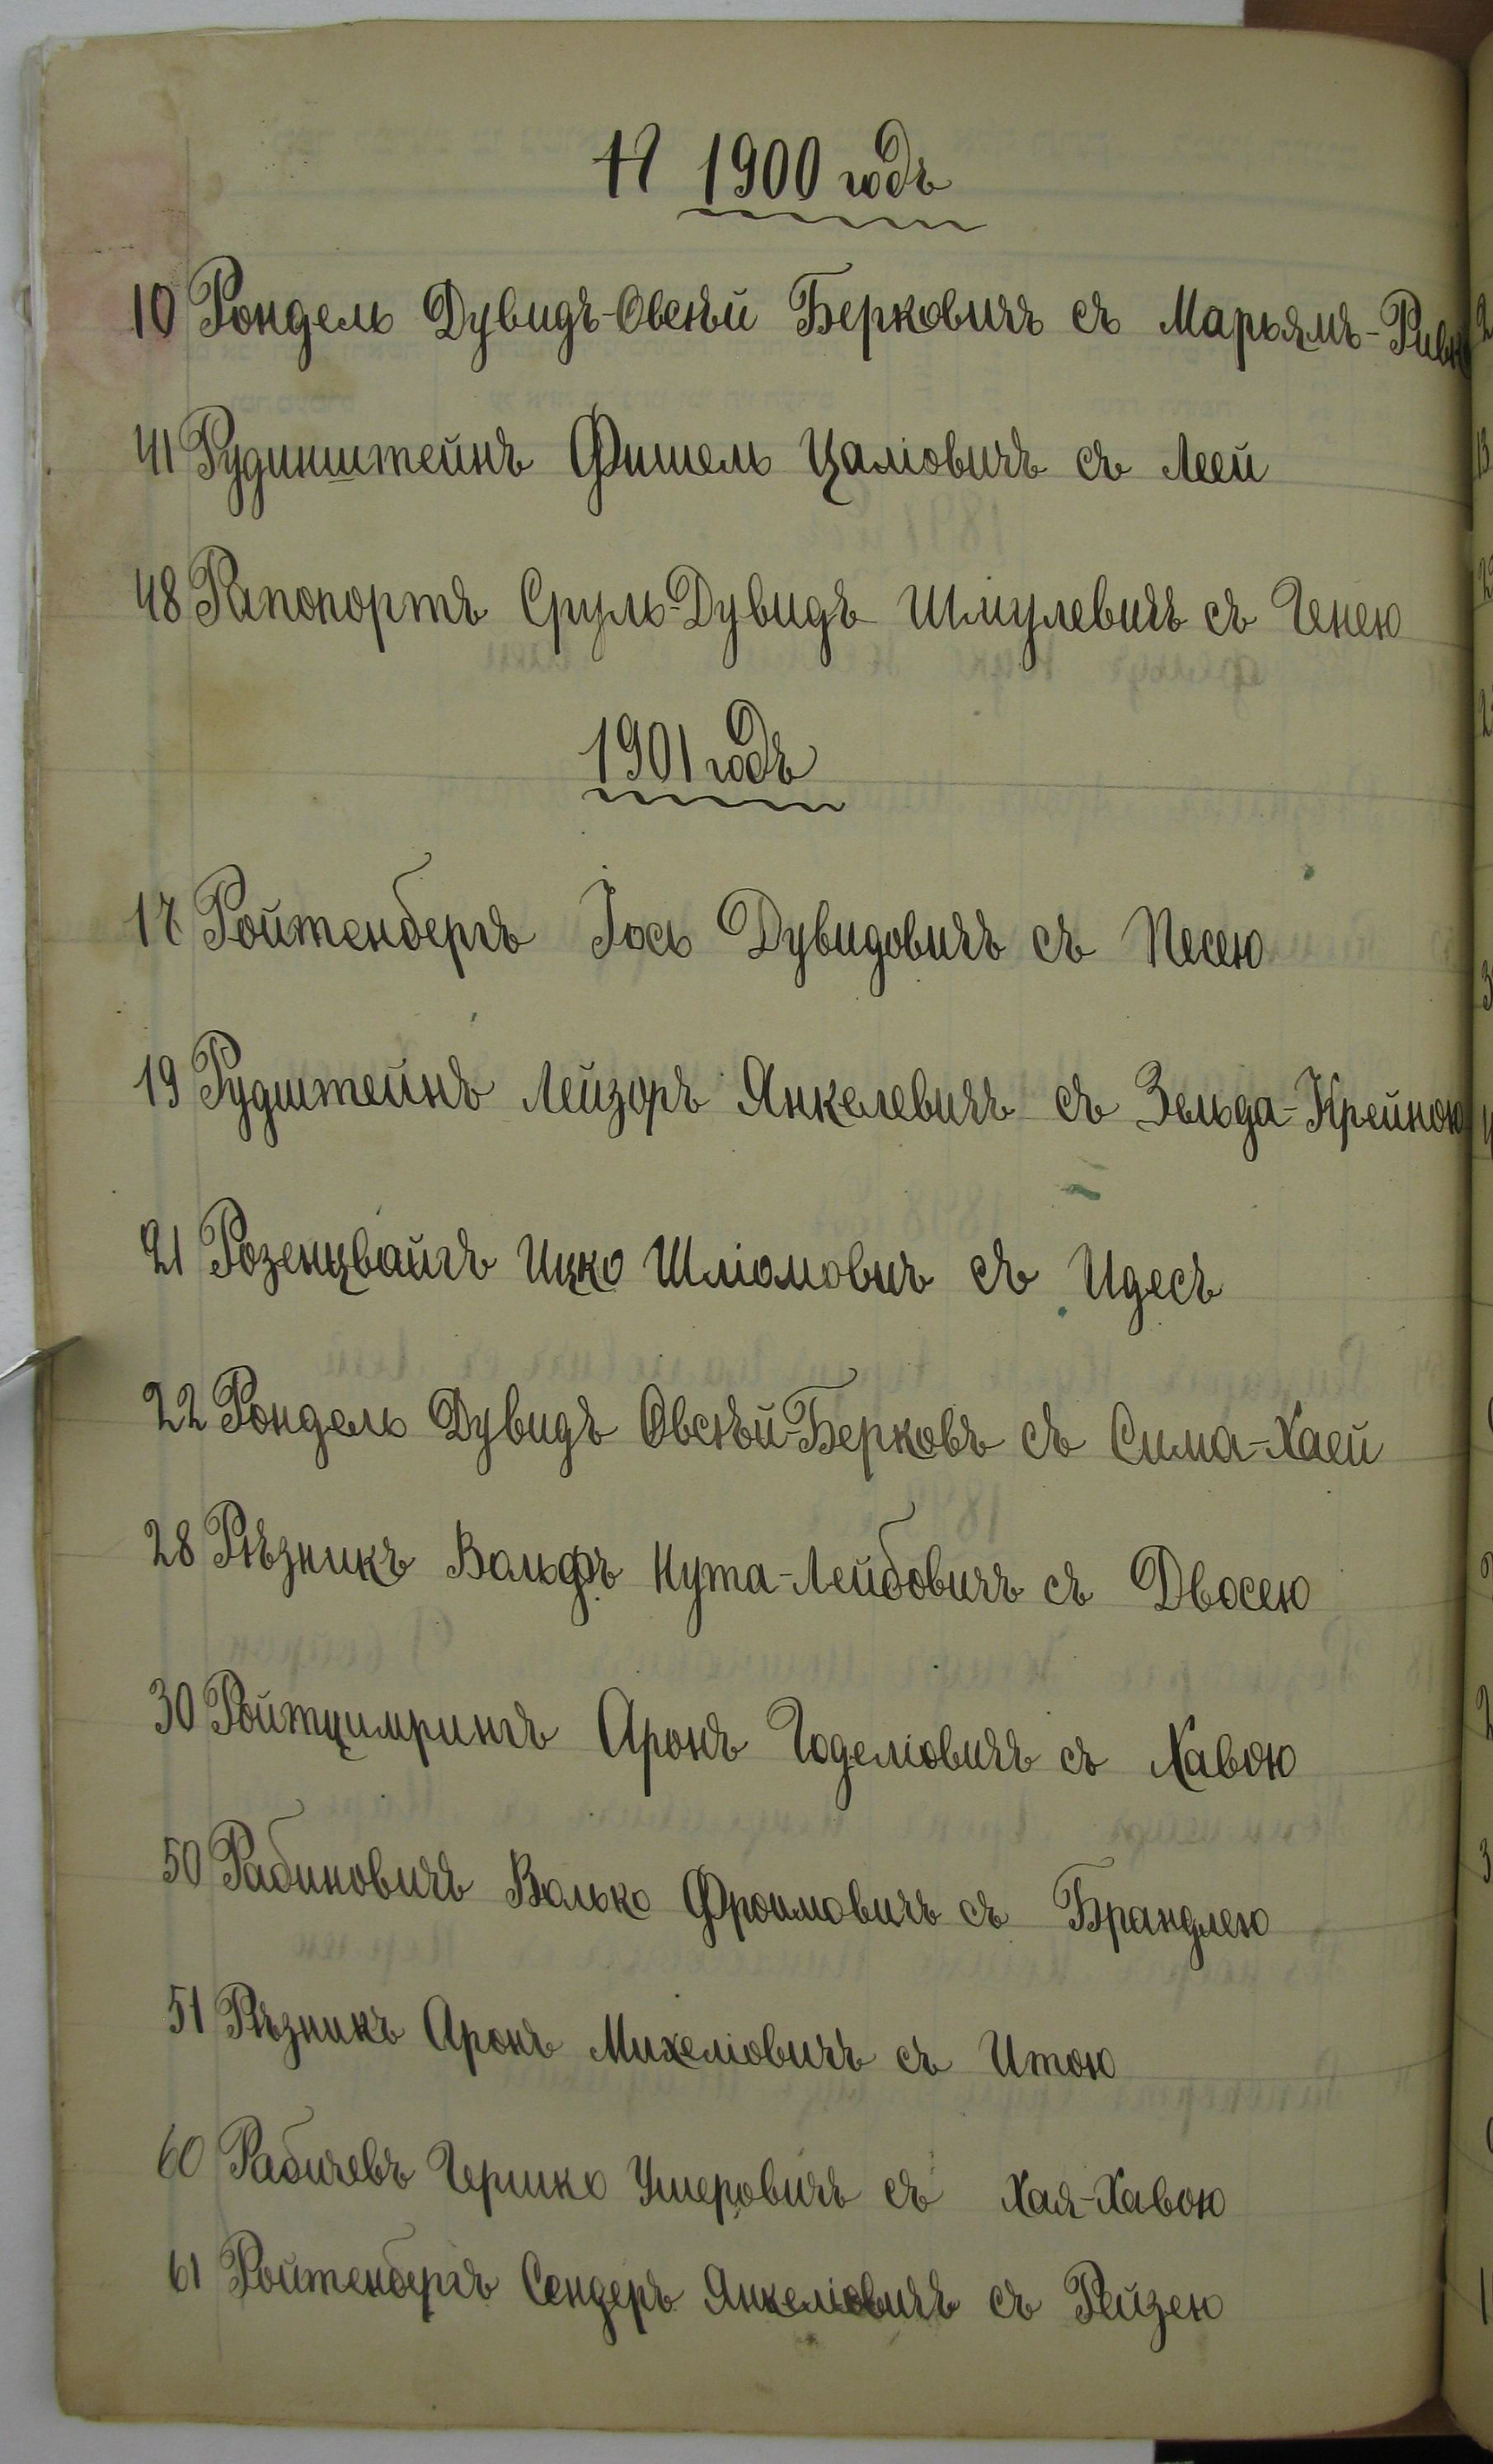 1900 годъ
10 Рондель Дувидъ-Овсѣй Берковичъ съ Марьямъ-Ривк
41 Рудинштейнъ Фишель Цаліовичъ съ Леей
48 Рапопортъ Сруль-Дувидъ Шмулевичъ съ Генею
1901 годъ
17 Ройтенбергъ Іось Дувидовичъ съ Песею
19 Рудштейнъ Лейзоръ Янкелевичъ съ Зельда-Крейною
21 Розенцвайгъ Ицко Шліомовичъ съ Идесъ
22 Рондель Дувидъ Овсѣй-Берковъ съ Сима-Хаей
28 Рѣзникъ Вольфъ Нута-Лейбовичъ съ Двосею
30 Ройтцимрингъ Аронъ Годеліовичъ съ Хавою
50 Рабиновичъ Волько Фроимовичъ съ Брандлею
51 Рѣзникъ Аронъ Михеліовичъ съ Итою
60 Рабичевъ Гершко Ушеровичъ съ Хая-Хавою
61 Ройтенбергъ Сендеръ Янкеліовичъ съ Рейзею